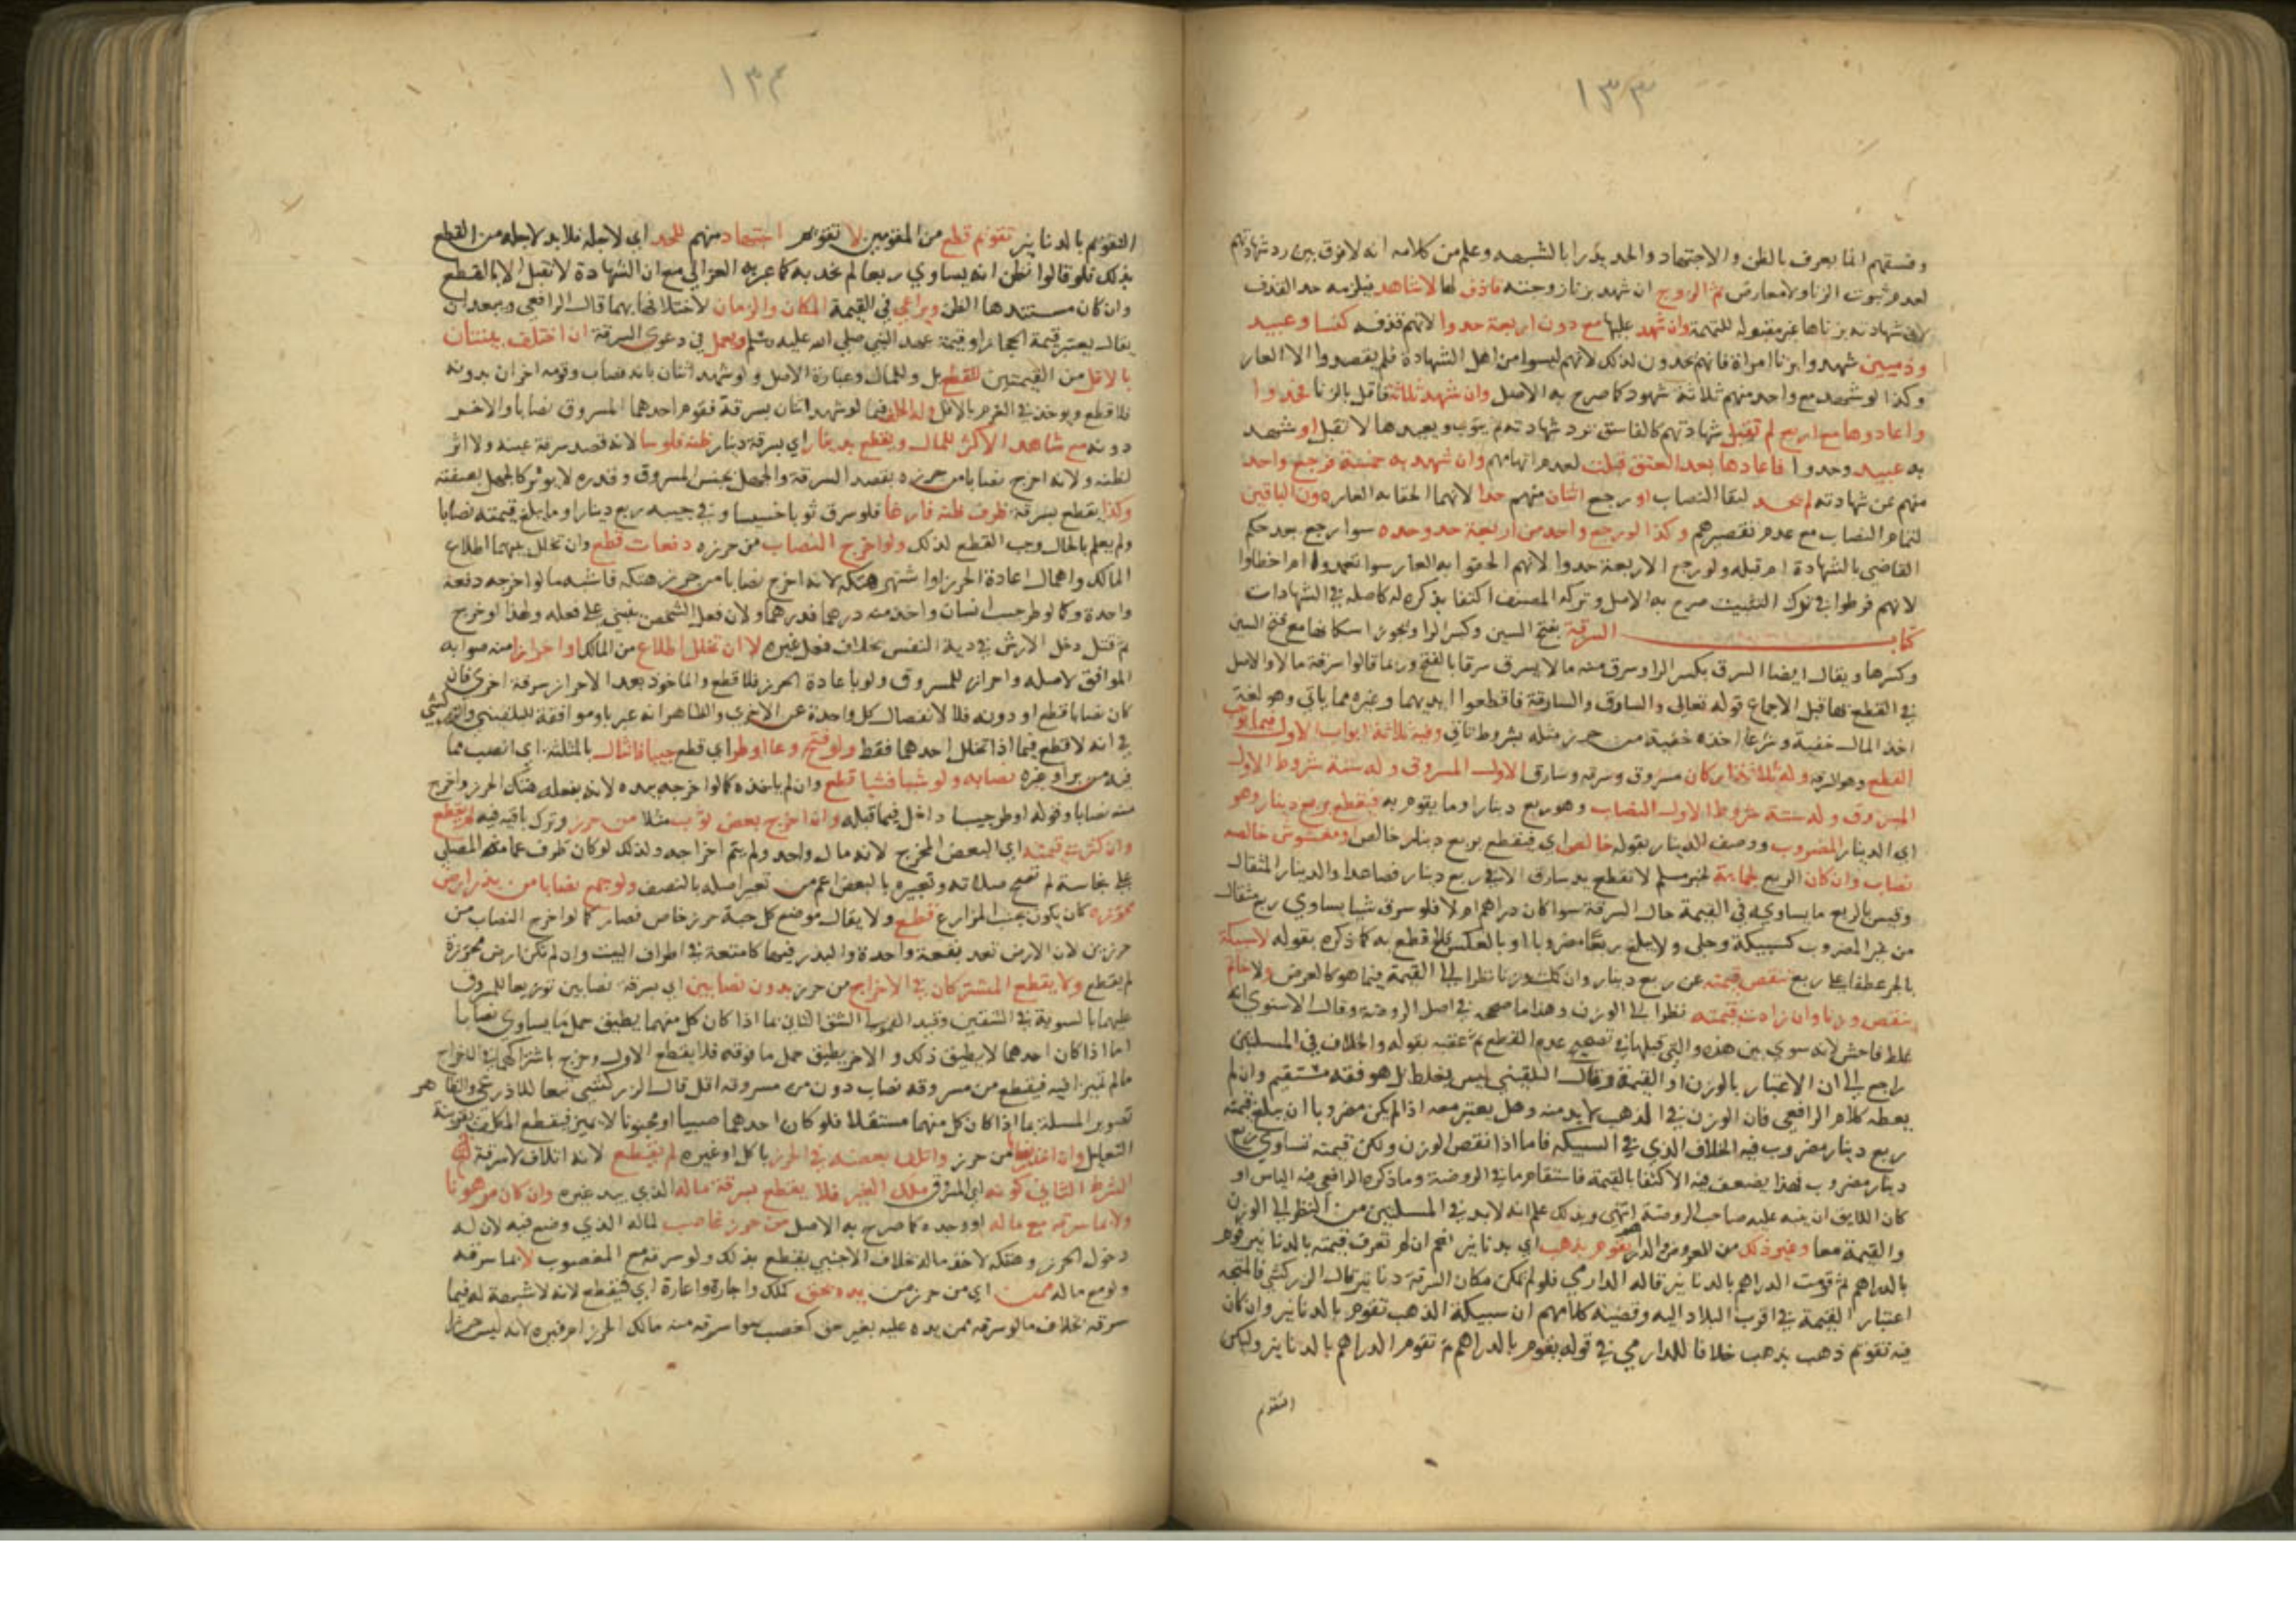 ١٣٣
وفسقهم انما يعرف بالظن والاجتهاد والحد يدرا بالشبهه وعلم من كلامه انه لا فرق بين رد شهادتهم
لعدم ثبوت الزنا ولا معارض ثم الزوج ان شهد بزنا زوجته قاذف لها لا شاهد فيلزمه حد القذف
لان شهادته بزناها غير مقبولة للتهمة وان شهد عليها مع دون اربعة حدوا لانهم قذفه كنسا وعبيد
وذميين شهدوا بزنا امراة فانهم يحدون لذلك لانهم ليسوا من اهل الشهادة فلم يقصدوا الا العار
وكذا لو شهد مع واحد منهم ثلاثة شهود كما صرح به الاصل وان شهد ثلاثة فاقل بالزنا فحدوا
واعادوها مع اربع لم تقبل شهادتهم كالفاسق ترد شهادته ثم يتوب ويعيدها لا تقبل او شهد
به عبيد وحدوا فاعادها بعد العتق قبلت لعدم اتهامهم وان شهد به خمسة فرجع واحد
منهم عن شهادته لم يحد لبقا النصاب او رجع اثنان منهم حدا لانهما الحقا به العار دون الباقين
لتمام النصاب مع عدم تقصيرهم وكذا لو رجع واحد من اربعة حد وحده سوا رجع بعد حكم
القاضي بالشهادة ام قبله ولو رجع الاربعة حدوا لانهم الحقوا به العار سوا تعمدوا ام اخطاوا
لانهم فرطوا في ترك التثبت صرح به الاصل وتركه المصنف اكتفا بذكره له كاصله في الشهادات
كتاب السرقة بفتح السين وكسر الرا ويجوز اسكانها مع فتح السين
وكسرها ويقال ايضا السرق بكسر الرا وسرق منه مالا يسرق سرقا بالفتح وربما قالوا سرقة مالا والاصل
في القطع بها قبل الاجماع قوله تعالى والسارق والسارقة فاقطعوا ايديهما وغيره مما ياتي وهي لغة
اخذ المال خفية وشرعا اخذه خفية من حرز مثله بشروط تاتي وفيه ثلاثة ابواب الاول فيما يوجب
القطع وهو السرقة وله ثلاثة اركان مسروق وسرقة وسارق الاول المسروق وله ستة شروط الاول
المسروق وله ستة شروط الاول النصاب وهو ربع دينار او ما يقوم به فيقطع بربع دينار وهو
اي الدينار المضروب ووصف الدينار بقوله خالص اي فيقطع بربع دينار خالص او مغشوش خالصه
نصاب وان كان الربع لجماعة لخبر مسلم لا تقطع يد سارق الا في ربع دينار فصاعدا والدينار المثقال
وقيس بالربع ما يساويه في القيمة حال السرقة سوا كان دراهم ام لا فلو سرق شيا يساوي ربع مثقال
من غير المضروب كسبيكة وحلي ولا يبلغ ربعا مضروبا او بالعكس فلا قطع به كما ذكره بقوله لا سبيكة
بالجر عطفا على ربع تنقص قيمته عن ربع دينار وان كملت وزنا نظرا الى القيمة فيما هو كالعرض ولا خاتم
ينقص وزنا وان زادت قيمته نظرا الى الوزن وهذا ما صححه في اصل الروضة وقال الاسنوي انه
غلط فاحش لانه سوى بين هذه والتي قبلها في تصحيح عدم القطع ثم عقبه بقوله والخلاف في المسئلتين
راجع الى ان الاعتبار بالوزن او القيمة وقال البلقيني ليس بغلط بل هو فقه مستقيم وان لم
يعطه كلام الرافعي فان الوزن في الذهب لا بد منه وهل يعتبر معه اذا لم يكن مضروبا ان يبلغ قيمته
ربع دينار مضروب فيه الخلاف الذي في السبيكة فاما اذا نقص الوزن ولكن قيمته تساوي ربع
دينار مضروب فهذا يضعف فيه الاكتفا بالقيمة فاستقام ما في الروضة وما ذكره الرافعي فيه الباس او
كان اللايق ان ينبه عليه صاحب الروضة انتهى وبذلك علم انه لا بد في المسئلتين من النظر الى الوزن
والقيمة معا وغير ذلك من العروض والدراهم يقوم بذهب اي بدنانير نعم ان لم تعرف قيمته بالدنانير قوم
بالدراهم ثم قومت الدراهم بالدنانير قاله الدارمي فلو لم يكن مكان السرقة دنانير قال الزركشي فالمتجه
اعتبار القيمة في اقرب البلاد اليه وقضية كلامهم ان سبيكة الذهب تقوم بالدنانير وان كان
فيه تقويم ذهب بذهب خلافا للدارمي في قوله يقوم بالدراهم ثم تقوم الدراهم بالدنانير وليكن
التقويم
١٣٤
التقويم بالدنانير تقويم قطع من المقومين لا تقويم اجتهاد منهم للحد اي لاجله فلا بد لاجله من القطع
بذلك فلو قالوا نظن انه يساوي ربعا لم يحد به كما عبر به الغزالي مع ان الشهادة لا تقبل الا بالقطع
وان كان مستندها الظن ويراعى في القيمة المكان والزمان لاختلافها بهما قال الرافعي ويبعد ان
يقال يعتبر قيمة الحجاز او قيمة عهد النبي صلى الله عليه وسلم ويعمل في دعوى السرقة ان اختلف بينتان
بالاقل من القيمتين للقطع بل وللمال وعبارة الاصل ولو شهد اثنان بانه نصاب وقومه اخران بدونه
فلا قطع ويوخذ في الغرم بالاقل وله الحلف فيما لو شهد اثنان بسرقة فقوم احدهما المسروق نصابا والاخر
دونه مع شاهد الاكثر للمال ويقطع بدينار اي بسرقة دينار ظنه فلوسا لانه قصد سرقة عينه ولا اثر
لظنه ولانه اخرج نصابا من حرزه بقصد السرقة والجهل بجنس المسروق وقدره لا يوثر كالجهل بصفته
وكذا يقطع بسرقة ظرف ظنه فارغا فلو سرق ثوبا خسيسا وفي جيبه ربع دينار او ما يبلغ قيمته نصابا
ولم يعلم بالحال وجب القطع لذلك ولو اخرج النصاب من حرزه دفعات قطع وان تخلل بينهما اطلاع
المالك واهمال اعادة الحرز او اشتهر هتكه لانه اخرج نصابا من حرز هتكه فاشبه ما لو اخرجه دفعة
واحدة وكما لو طر جيب انسان واخذ منه درهما فدرهما ولان فعل الشخص يبنى على فعله ولهذا لو جرح
ثم قتل دخل الارش في دية النفس بخلاف فعل غيره لا ان تخلل اطلاع من المالك او احرازا منه صوابه
الموافق لاصله واحراز للمسروق ولو باعادة الحرز فلا قطع والماخوذ بعد الاحراز سرقة اخرى فان
كان نصابا قطع او دونه فلا لانفصال كل واحدة عن الاخرى والظاهر انه عبر باو موافقة للبلقيني والزركشي
في انه لا قطع فيما اذا تخلل احدهما فقط ولو فتح وعا او طر اي قطع جيبا فانثال بالمثلثة اي انصب مما
فيه من بر او غيره نصابه ولو شيا فشيا قطع وان لم ياخذه كما لو اخرجه بيده لانه بفعله هتك الحرز واخرج
منه نصابا وقوله او طر جيبا داخل فيما قبله وان اخرج بعض ثوب مثلا من حرز وترك باقيه فيه لم يقطع
وان كثرت قيمته اي البعض المخرج لانه مال واحد ولم يتم اخراجه ولذلك لو كان طرف عمامة المصلي
على نجاسة لم تصح صلاته وتعبيره بالبعض اعم من تعبير اصله بالنصف ولو جمع نصابا من بذر ارض
محرزه كان يكون بجنب المزارع قطع ولا يقال موضع كل حبة حرز خاص فصار كما لو اخرج النصاب من
حرزين لان الارض تعد بقعة واحدة والبذر فيها كامتعة في اطراف البيت وان لم تكن ارض محرزة
لم يقطع ولا يقطع المشتركان في الاخراج من حرز بدون نصابين اي بسرقة نصابين توزيعا للمسروق
عليهما بالسوية في الشقين وقيد الشق الثاني بما اذا كان كل منهما يطيق حمل ما يساوي نصابا
اما اذا كان احدهما لا يطيق ذلك والاخر يطيق حمل ما فوقه فلا يقطع الاول وخرج باشتراكهما في الاخراج
ما لم تميزا فيه فيقطع من مسروقه نصاب دون من مسروقه اقل قال الزركشي تبعا للاذرعي والظاهر
تصوير المسئلة بما اذا كان كل منهما مستقلا فلو كان احدهما صبيا او مجنونا لا يميز فيقطع المكلف
وان اخذ نصابا من حرز واتلف بعضه في الحرز باكل او غيره لم يقطع لانه اتلاف لا سرقة
الشرط الثاني كونه اي المسروق ملك الغير فلا يقطع بسرقة ماله الذي بيد غيره وان كان مرهونا
ولا بما سرقه مع ماله او وحده كما صرح به الاصل من حرز غاصب لماله الذي وضع فيه لان له
دخول الحرز وهتكه لاخذ ماله بخلاف الاجنبي يقطع بذلك ولو سرقه مع المغصوب لا بما سرقه
ولو مع ماله ممن اي من حرز من يده بحق كملك واجارة واعارة اي فيقطع لانه لا شبهة له فيما
سرقه بخلاف ما لو سرقه ممن يده عليه بغير حق كغصب سوا سرقه منه مالك الحرز ام غيره لانه ليس حرزا